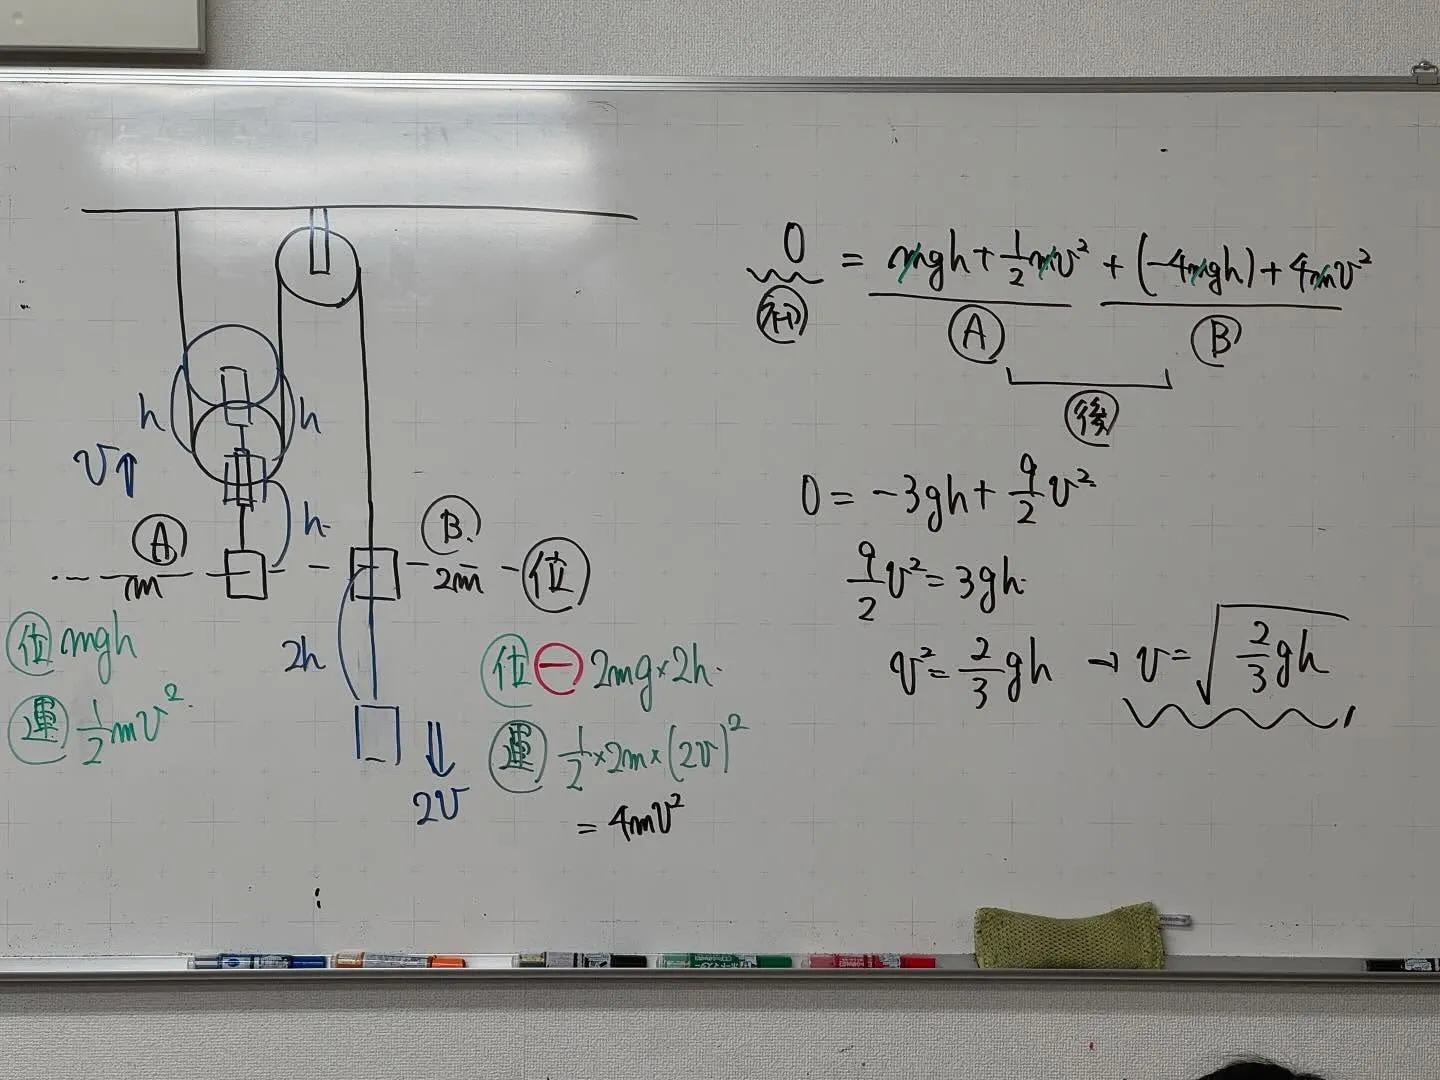 h
h
v↑
h
Ⓐ
m
Ⓑ
2m
㊉位
2h
位 mgh
運 1/2 mv²
2v
位 ⊖ 2mg×2h
運 1/2 ×2m×(2v)²
= 4mv²
0 = mgh + 1/2 mv² + (-4mgh) + 4mv²
初
Ⓐ
Ⓑ
後
0 = -3gh + 9/2 v²
9/2 v² = 3gh
v² = 2/3 gh → v = √(2/3 gh)